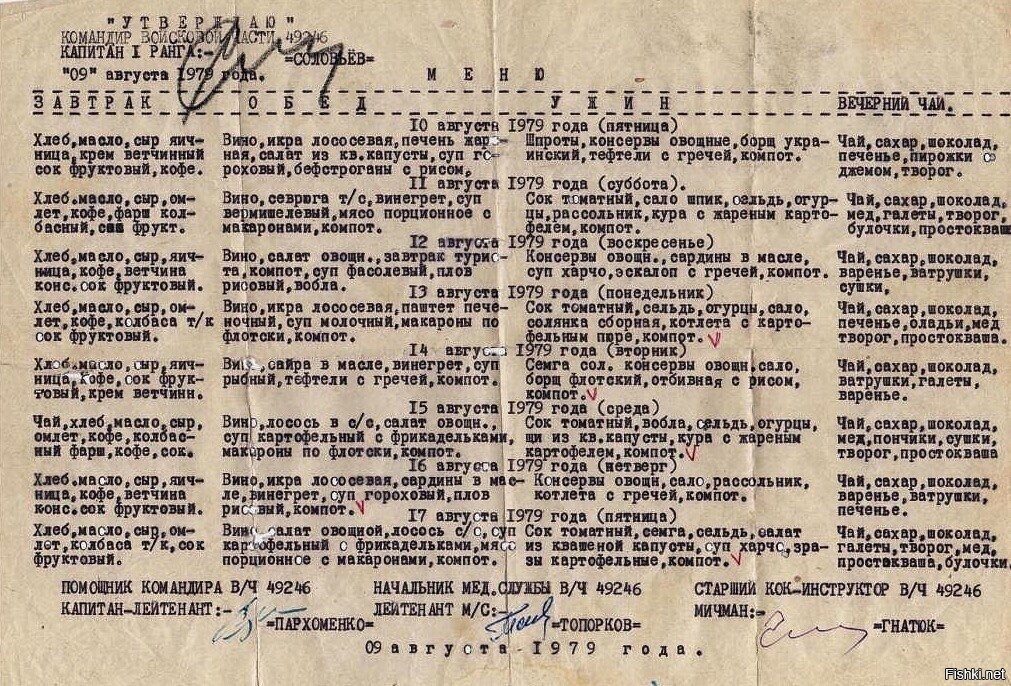 "УТВЕРЖДАЮ"
КОМАНДИР ВОЙСКОВОЙ ЧАСТИ 49246
КАПИТАН I РАНГА:- =СОЛОВЬЁВ=
"09" августа 1979 года. МЕНЮ
ЗАВТРАК ОБЕД УЖИН ВЕЧЕРНИЙ ЧАЙ.
10 августа 1979 года (пятница)
Хлеб,масло,сыр яич- Вино,икра лососевая,печень жаре- Шпроты,консервы овощные,борщ укра- Чай,сахар,шоколад,
ница,крем ветчинный ная,салат из кв.капусты,суп го- инский,тефтели с гречей,компот. печенье,пирожки с
сок фруктовый,кофе. роховый,бефстроганы с рисом, джемом,творог.
11 августа 1979 года (суббота).
Хлеб,масло,сыр,ом- Вино,севрюга т/с,винегрет,суп Сок томатный,сало шпик,сельдь,огур- Чай,сахар,шоколад,
лет,кофе,фарш кол- вермишелевый,мясо порционное с цы,рассольник,кура с жареным карто- мед,галеты,творог,
басный, фрукт. макаронами,компот. фелем,компот. булочки,простокваша
12 августа 1979 года (воскресенье)
Хлеб,масло,сыр,яич- Вино,салат овощн.,завтрак турис- Консервы овощн.,сардины в масле, Чай,сахар,шоколад,
ница,кофе,ветчина та,компот,суп фасолевый,плов суп харчо,эскалоп с гречей,компот. варенье,ватрушки,
конс.сок фруктовый. рисовый,вобла. сушки,
13 августа 1979 года (понедельник)
Хлеб,масло,сыр,ом- Вино,икра лососевая,паштет пече- Сок томатный,сельдь,огурцы,сало, Чай,сахар,шоколад,
лет,кофе,колбаса т/к ночный,суп молочный,макароны по солянка сборная,котлета с карто- печенье,оладьи,мед
сок фруктовый. флотски,компот. фельным пюре,компот. творог,простокваша.
14 августа 1979 года (вторник)
Хлеб,масло,сыр,яич- Вино,сайра в масле,винегрет,суп Семга сол. консервы овощн,сало, Чай,сахар,шоколад,
ница,кофе,сок фрук- рыбный,тефтели с гречей,компот. борщ флотский,отбивная с рисом, ватрушки,галеты,
товый,крем ветчинн. компот. варенье.
15 августа 1979 года (среда)
Чай,хлеб,масло,сыр, Вино,лосось в с/с,салат овощн., Сок томатный,вобла,сельдь,огурцы, Чай,сахар,шоколад,
омлет,кофе,колбас- суп картофельный с фрикадельками, щи из кв.капусты,кура с жареным мед,пончики,сушки,
ный фарш,кофе,сок. макароны по флотски,компот. картофелем,компот. творог,простокваша
16 августа 1979 года (четверг)
Хлеб,масло,сыр,яич- Вино,икра лососевая,сардины в мас- Консервы овощн,сало,рассольник, Чай,сахар,шоколад,
ница,кофе,ветчина ле,винегрет,суп гороховый,плов котлета с гречей,компот. варенье,ватрушки,
конс.сок фруктовый. рисовый,компот. печенье.
17 августа 1979 года (пятница)
Хлеб,масло,сыр,ом- Вино,салат овощной,лосось с/с,суп Сок томатный,семга,сельдь,салат Чай,сахар,шоколад,
лет,колбаса т/к,сок картофельный с фрикадельками,мясо из квашеной капусты,суп харчо,зра- галеты,творог,мед,
фруктовый. порционное с макаронами,компот. зы картофельные,компот. простокваша,булочки.
ПОМОШНИК КОМАНДИРА В/Ч 49246 НАЧАЛЬНИК МЕД.СЛУЖБЫ В/Ч 49246 СТАРШИЙ КОК-ИНСТРУКТОР В/Ч 49246
КАПИТАН-ЛЕЙТЕНАНТ:- ЛЕЙТЕНАНТ М/С:- МИЧМАН:-
=ПАРХОМЕНКО= =ТОПОРКОВ= =ГНАТЮК=
09 августа 1979 года.
Fishki.net